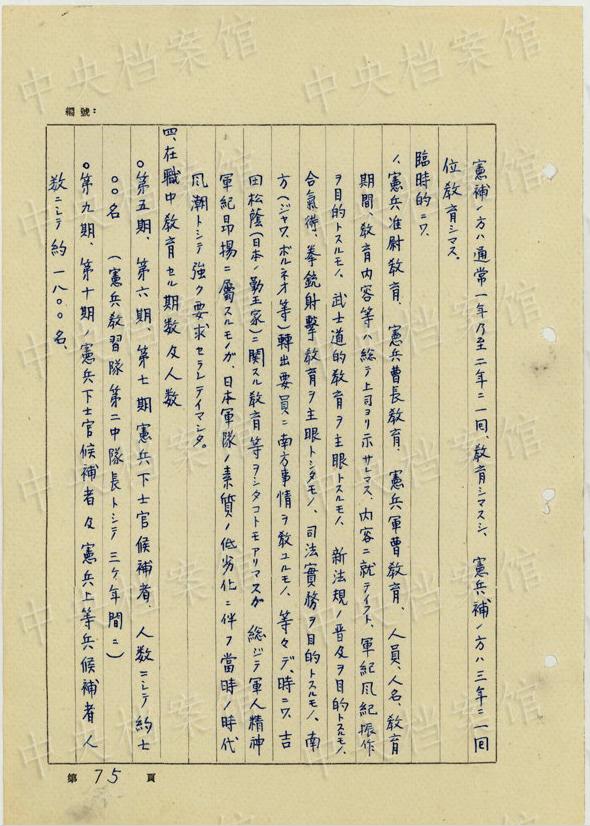 編號:
憲補ノ方ハ通常一年乃至二年ニ一回、教育シマスシ、憲兵補ノ方ハ三年ニ一回
位教育シマス。
臨時的ニワ、
ノ、憲兵准尉教育、憲兵曹長教育、憲兵軍曹教育、人員、人名、教育
期間、教育内容等ハ総テ上司ヨリ示サレマス、内容ニ就テイフト、軍紀風紀振作
ヲ目的トスルモノ、武士道的教育ヲ主眼トスルモノ、新法規ノ普及ヲ目的トスルモノ、
合氣術、拳銃射撃教育ヲ主眼トシタモノ、司法實務ヲ目的トスルモノ、南
方(ジャワ、ボルネオ等)轉出要員ニ南方事情ヲ教ユルモノ、等々デ、時ニワ、吉
田松蔭(日本ノ勤王家)ニ関スル教育等ヲシタコトモアリマスガ 総ジテ軍人精神
軍紀昂揚ニ屬スルモノガ、日本軍隊ノ素質ノ低劣化ニ伴フ當時ノ時代
風潮トシテ強ク要求セラレテイマシタ。
四、在職中教育セル期数及人数
○第五期、第六期、第七期憲兵下士官候補者、人数ニシテ約七
○○名 (憲兵教習隊第二中隊長トシテ三ケ年間ニ)
○第九期、第十期ノ憲兵下士官候補者及憲兵上等兵候補者人
数ニシテ約一八○○名、
第 75 頁
中央档案馆
中央档案馆
中央档案馆
中央档案馆
中央档案馆
中央档案馆